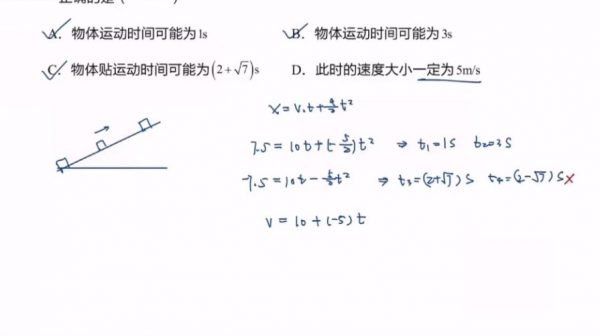 A. 物体运动时间可能为1s B. 物体运动时间可能为3s
C. 物体贴运动时间可能为(2+√7)s D. 此时的速度大小一定为5m/s
x=v₀t+a/2t²
7.5=10t+(-5/2)t² ⇒ t₁=1s t₂=3s
-7.5=10t-5/2t² ⇒ t₃=(2+√7)s t₄=(2-√7)s×
v=10+(-5)t